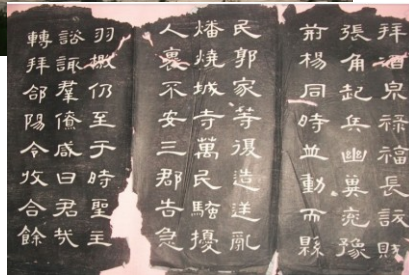 拜酒泉禄福長訞賊
張角起兵幽冀兗豫
荊楊同時並動而縣
民郭家等復造逆亂
燔燒城寺萬民騷擾
人裹不安三郡告急
羽檄仍至于時聖主
諮諏羣僚咸曰君哉
轉拜郃陽令收合餘